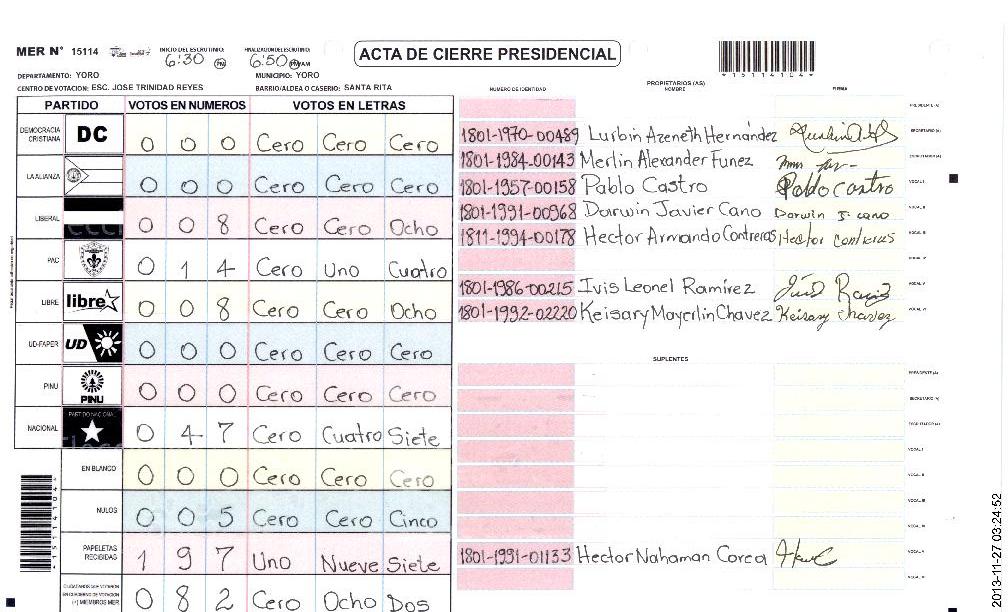 MER N° 15114 INICIO DEL ESCRUTINIO: 6:30 PM FINALIZACION DEL ESCRUTINIO: 6:50 PM AM ACTA DE CIERRE PRESIDENCIAL *15114104*
DEPARTAMENTO: YORO MUNICIPIO: YORO
CENTRO DE VOTACION: ESC. JOSE TRINIDAD REYES BARRIO/ALDEA O CASERIO: SANTA RITA
PARTIDO VOTOS EN NUMEROS VOTOS EN LETRAS
DEMOCRACIA CRISTIANA DC 0 0 0 Cero Cero Cero
LA ALIANZA 0 0 0 Cero Cero Cero
LIBERAL 0 0 8 Cero Cero Ocho
PAC 0 1 4 Cero Uno Cuatro
LIBRE libre 0 0 8 Cero Cero Ocho
UD-FAPER UD 0 0 0 Cero Cero Cero
PINU PINU 0 0 0 Cero Cero Cero
NACIONAL PARTIDO NACIONAL 0 4 7 Cero Cuatro Siete
EN BLANCO 0 0 0 Cero Cero Cero
NULOS 0 0 5 Cero Cero Cinco
PAPELETAS RECIBIDAS 1 9 7 Uno Nueve Siete
CIUDADANOS QUE VOTARON EN CUADERNO DE VOTACION (+) MIEMBROS MER 0 8 2 Cero Ocho Dos
PROPIETARIOS (AS)
NUMERO DE IDENTIDAD NOMBRE FIRMA
PRESIDENTE (A)
1801-1970-00489 Lurbin Azeneth Hernández SECRETARIO (A)
1801-1984-00143 Merlin Alexander Funez ESCRUTADOR (A)
1801-1957-00158 Pablo Castro Pablo Castro VOCAL I
1801-1991-00968 Darwin Javier Cano Darwin J. cano VOCAL II
1811-1994-00178 Hector Armando Contreras Hector Contreras VOCAL III
VOCAL IV
1801-1986-00215 Ivis Leonel Ramírez VOCAL V
1801-1992-02220 Keisary Mayerlin Chavez Keisary Chavez VOCAL VI
SUPLENTES
PRESIDENTE (A)
SECRETARIO (A)
ESCRUTADOR (A)
VOCAL I
VOCAL II
VOCAL III
VOCAL IV
1801-1991-01133 Hector Nahaman Corea VOCAL V
VOCAL VI
2013-11-27 03:24:52